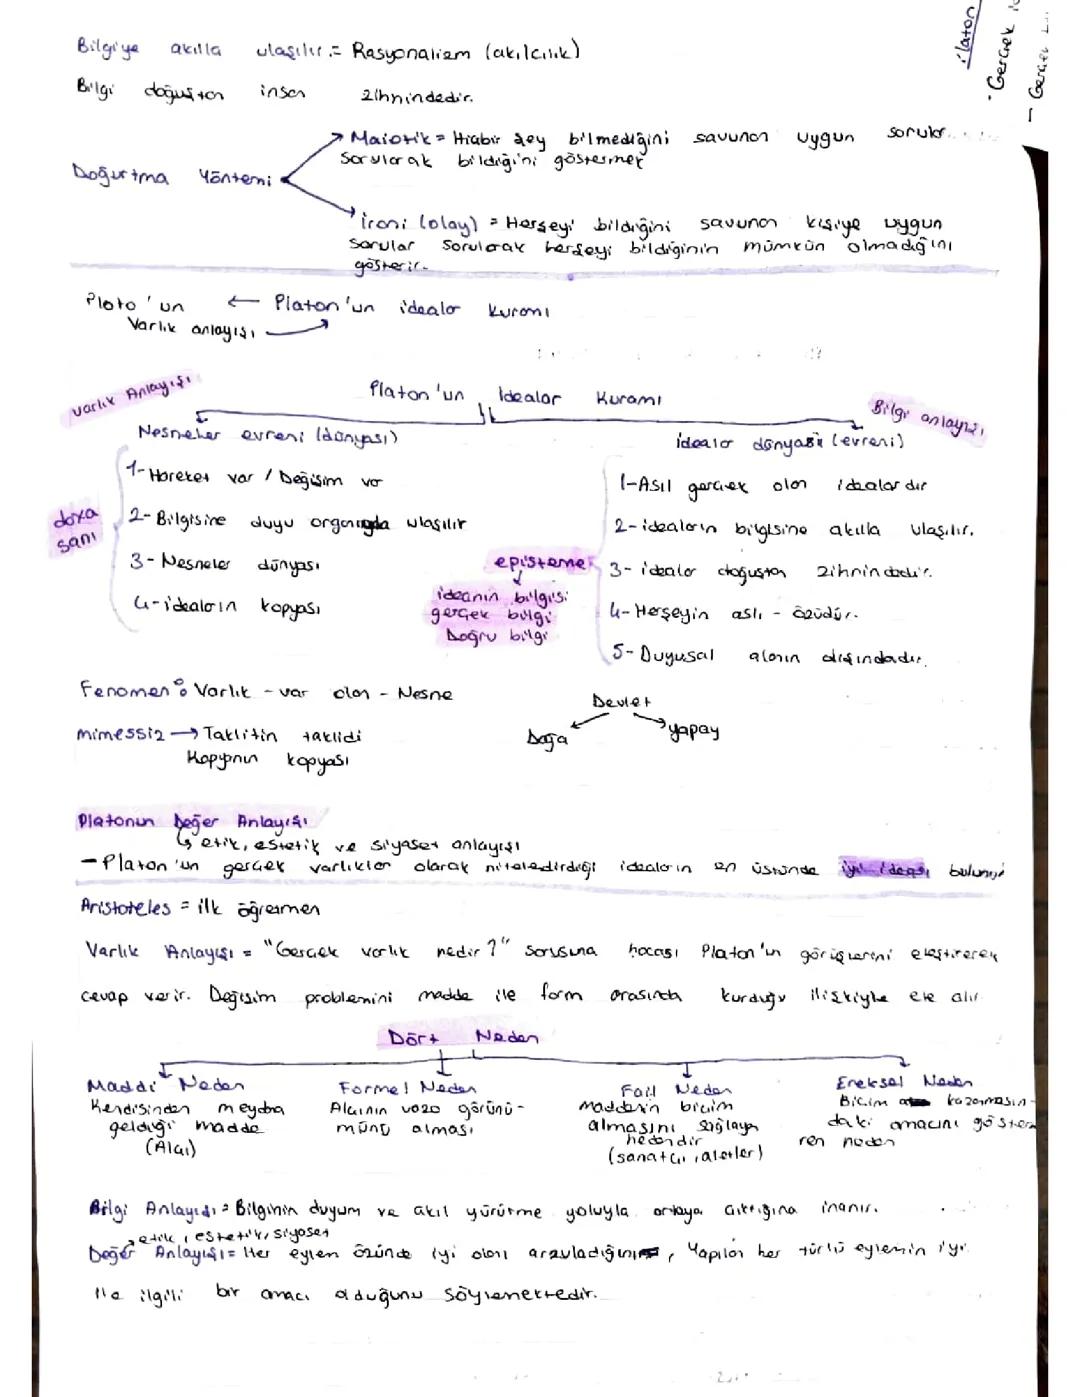 Bilgiye akılla ulaşılır. = Rasyonalizm (akılcılık)
Bilgi doğuştan insan zihnindedir.
Platon
· Gerçek
- Gerçek
Doğurtma Yöntemi
Maiotik = Hiçbir şey bilmediğini savunan uygun sorular
sorularak bildiğini göstermek
İroni (alay) = Herşeyi bildiğini savunan kişiye uygun
sorular sorularak herşeyi bildiğinin mümkün olmadığını
gösterir.
Plato'un ← Platon'un idealar kuramı
Varlık anlayışı
Platon'un İdealar Kuramı
Varlık Anlayışı
Bilgi anlayışı
Nesneler evreni (dünyası)
1- Hareket var / Değişim var
2- Bilgisine duyu organıyla ulaşılır
3- Nesneler dünyası
4- ideaların kopyası
doxa
sanı
idealar dünyası (evreni)
1- Asıl gerçek olan idealardır
2- ideaların bilgisine akılla ulaşılır.
3- idealar doğuştan zihnindedir.
4- Herşeyin aslı - özüdür.
5- Duyusal alanın dışındadır.
episteme
ideanın bilgisi
gerçek bilgi
Doğru bilgi
Fenomen : Varlık - var olan - Nesne
mimessiz → Taklitin taklidi
Kopyanın kopyası
Devlet
Doğa
yapay
Platonun Değer Anlayışı
etik, estetik ve siyaset anlayışı
- Platon'un gerçek varlıklar olarak niteledirdiği idealarin en üstünde iyi ideası bulunur
Aristoteles = ilk öğretmen
Varlık Anlayışı = "Gerçek varlık nedir?" sorusuna hocası Platon'un görüşlerini eleştirerek
cevap verir. Değişim problemini madde ile form arasında kurduğu ilişkiyle ele alır
Dört Neden
Maddi Neden
Kendisinden meydna
geldiği madde
(Alçı)
Formel Neden
Alçının vazo görünü-
münü alması
Fail Neden
Maddenin biçim
almasını sağlaya
nedendir
(sanatçı, aletler)
Ereksel Neden
Biçim kazanmasın-
daki amacını göste
ren neden
Bilgi Anlayışı = Bilginin duyum ve akıl yürütme yoluyla ortaya çıktığına inanır.
etik, estetik, siyaset
Değer Anlayışı = Her eylem özünde iyi olanı arzuladığını, Yapılan her türlü eylemin iyi
ile ilgili bir amacı olduğunu söylemektedir.